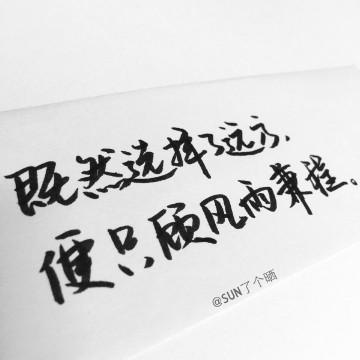 既然选择了远方，
便只顾风雨兼程。
@SUN了个晒